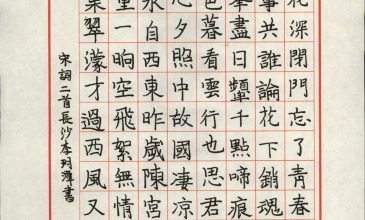 深閉門忘了青春
事共誰論花下銷魂
盡日顰千點啼痕
色暮看雲行也思君
夕照中故國凄涼
水自西東昨歲陳宮
重一晌空飛絮無情
翠濛才過西風又
宋詞二首長沙李書